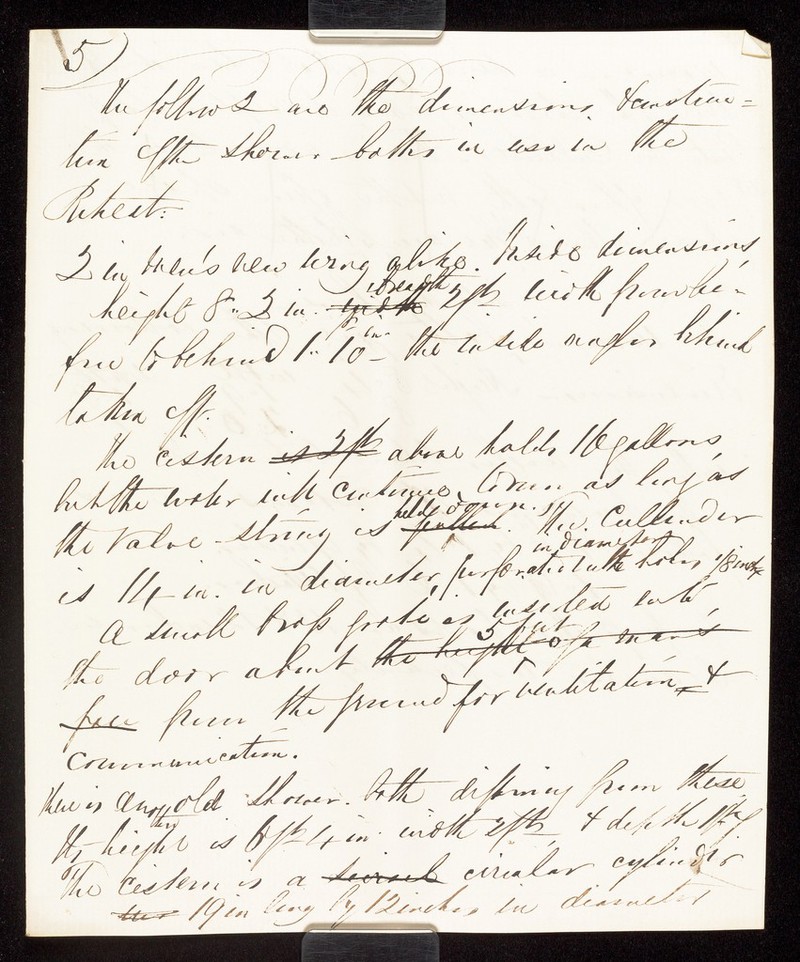 5)
The follow.g are the dimensions & construc=
tion of the shower-baths in use in the
Retreat:
2 in Men's new wing alike. Inside dimensions,
breadth
height 8" 2 in. width 2 ft. from be-
in
fore to behind 1" 10 - the inside angles behind
taken off.
The cistern is 2 ft above holds 16 gallons,
but the water will continue down as long as
held down
the valve-string is pulled. The Cullender
in diameter
is 14 in. in diameter, perforated with holes 1/8 inch
A small brass grate is inserted into
5 feet
the door about the height of a man's
face from the ground for ventilation &
communication.
There is another old shower-bath differing from these,
Its height is 6 ft 4 in. width 2 ft, & depth 1 ft
The cistern is a circular cylinder
19 in long by 12 inches in diameter